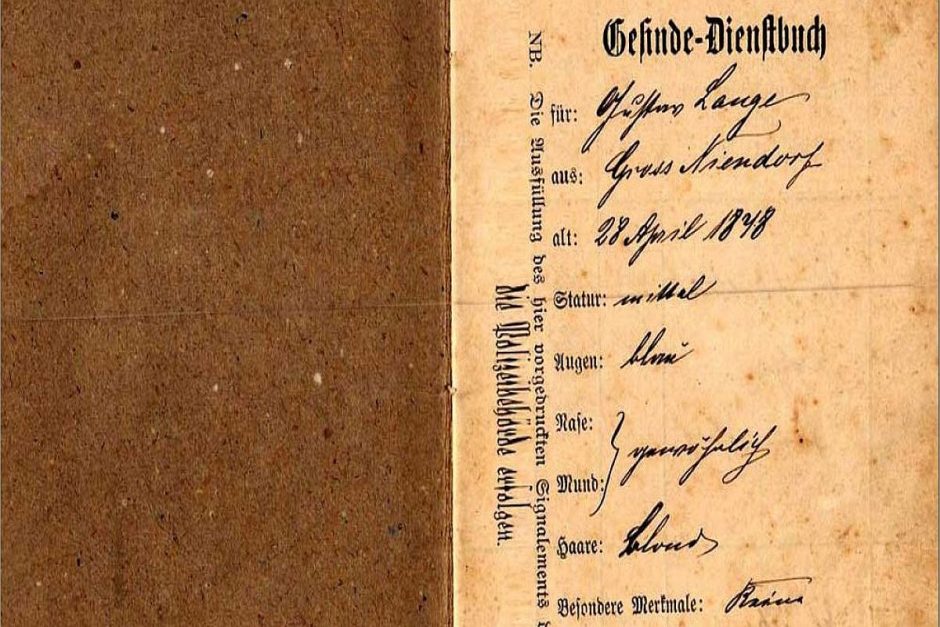 Gesinde-Dienstbuch
für: Gustav Lange
aus: Gross Niendorf
alt: 28 April 1848
Statur: mittel
Augen: blau
Nase:
Mund: gewöhnlich
Haare: Blond
Besondere Merkmale: Keine
NB. Die Ausfüllung des hier vorgedruckten Signalements
die Polizeibehörde erfolgen.